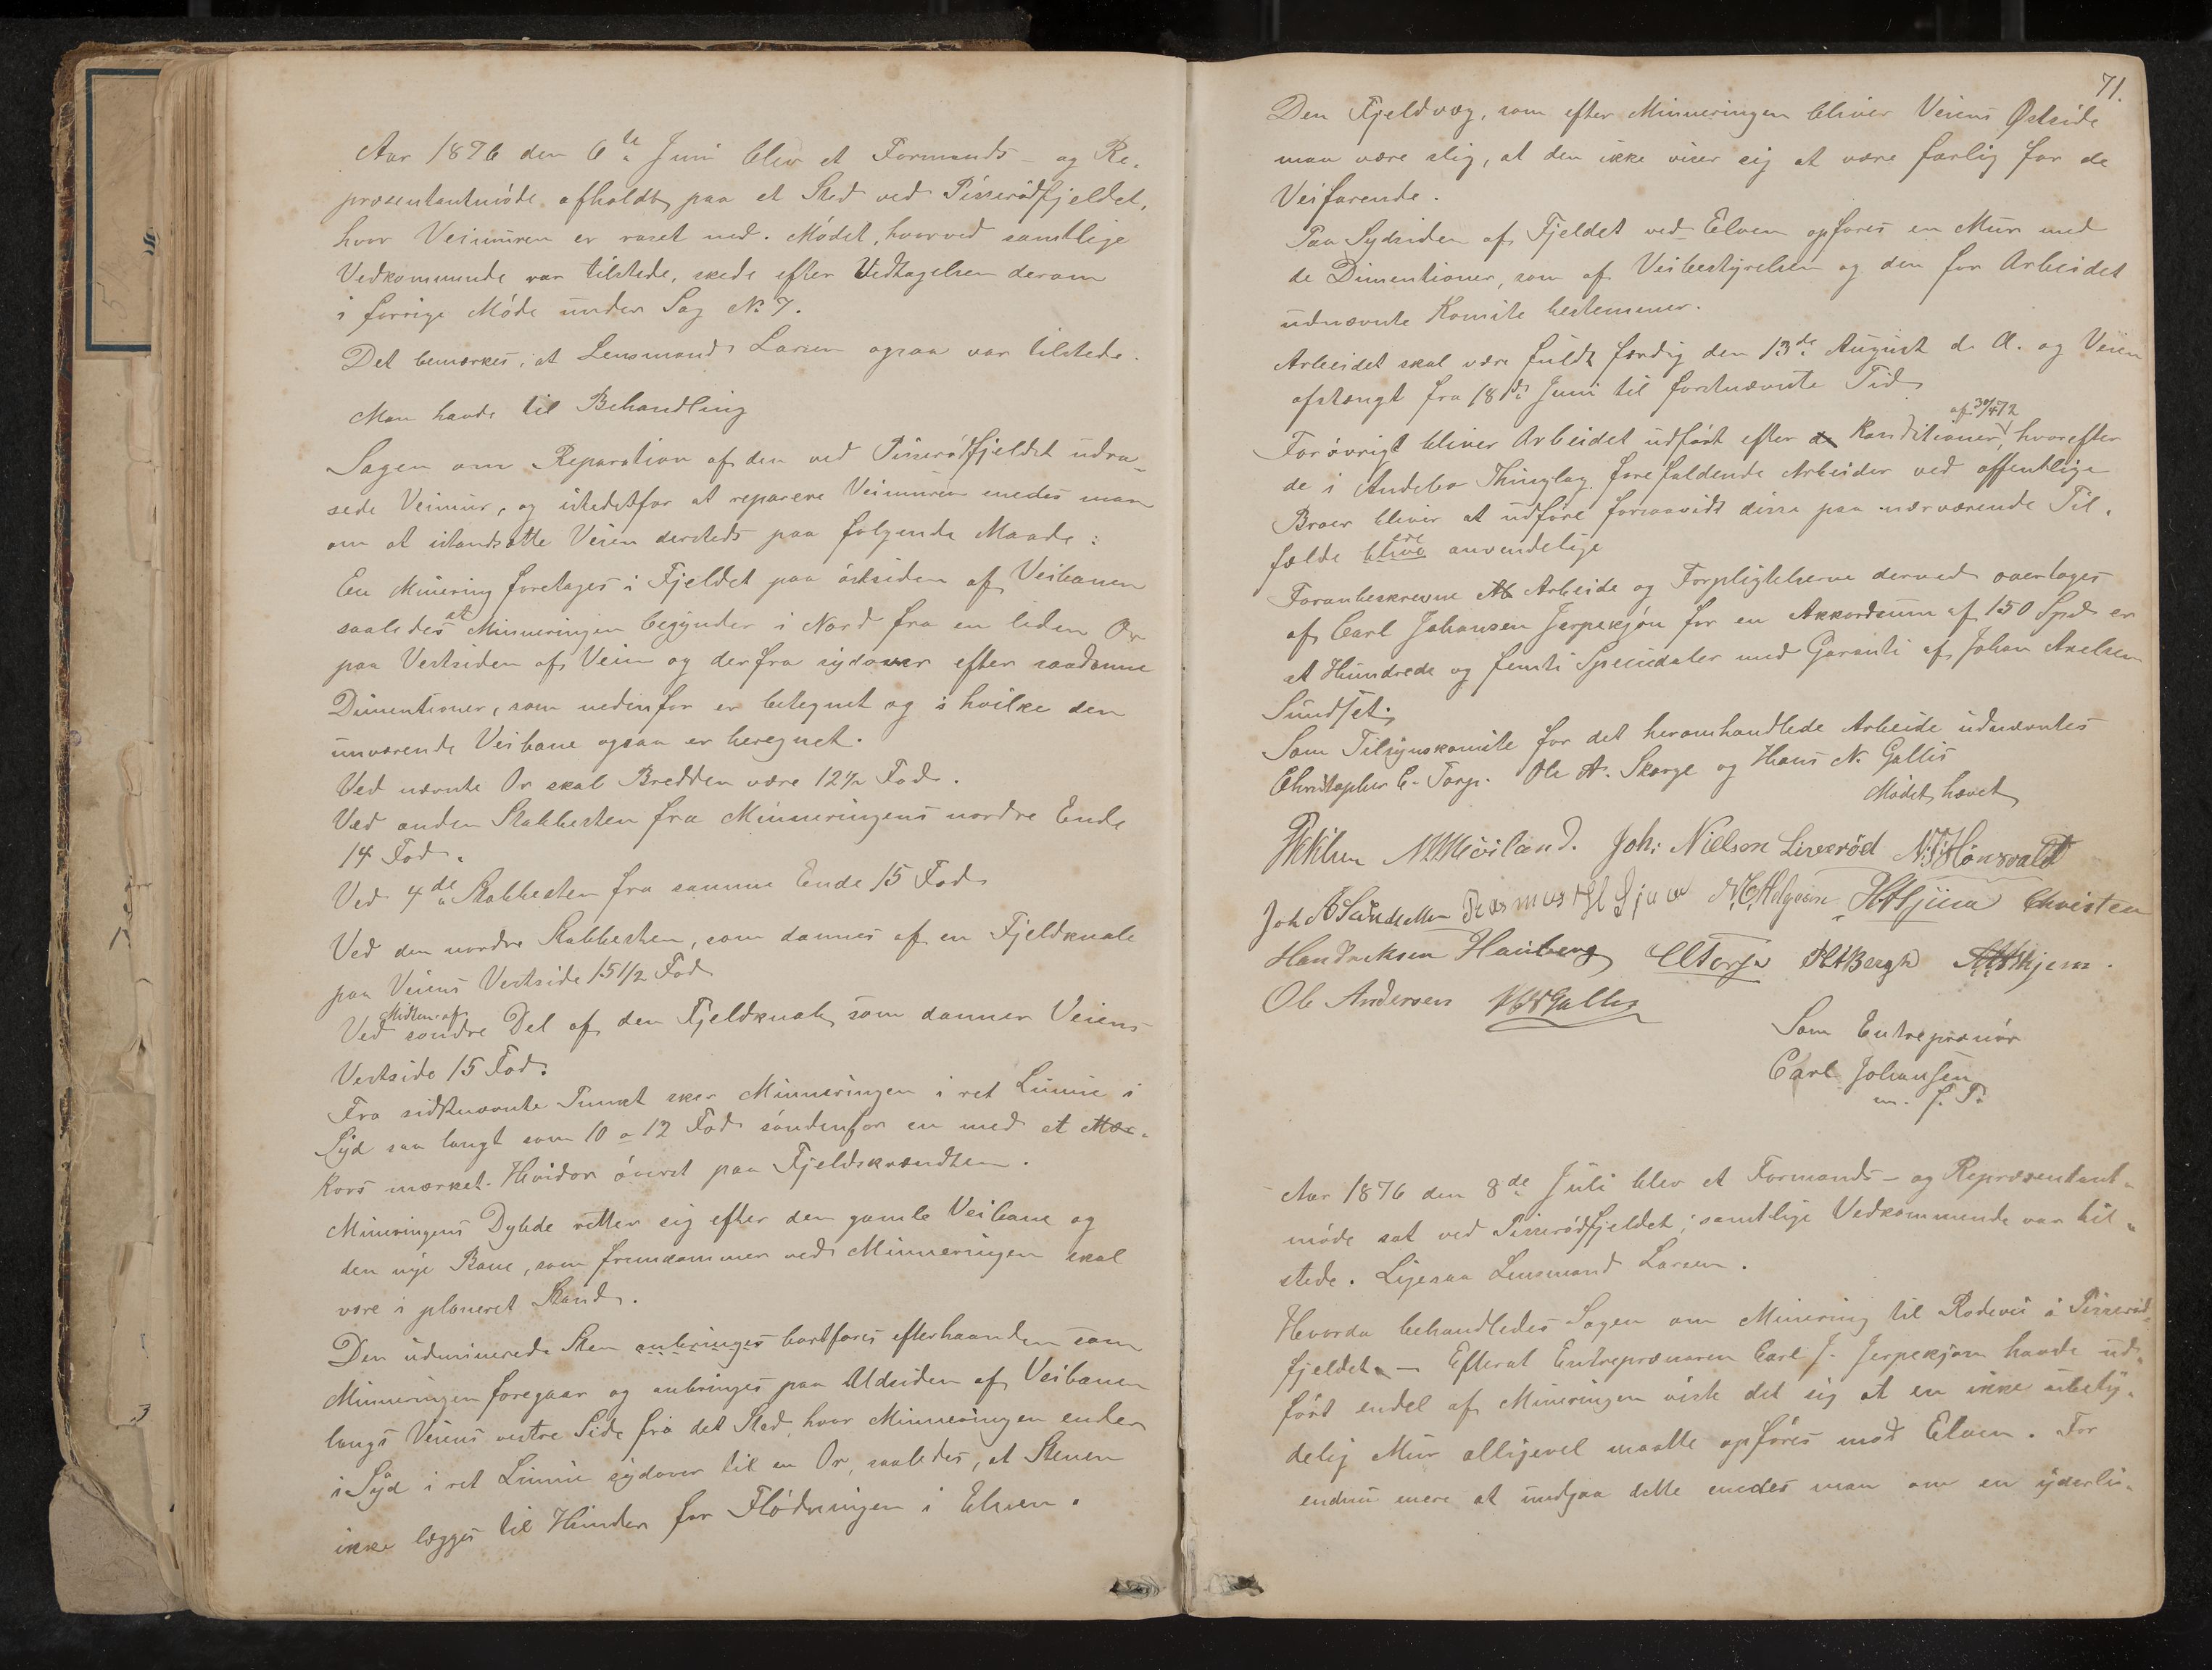 Aar 1876 den 6te Juni blev et Formands- og Re-
præsentantmöde afholdt paa et Sted ved Pisserödfjeldet,
hvor Veimuren er raset ned. Mödet, hvorved samtlige
Vedkommende var tilstede, skede efter Vedtagelsen derom
i forrige Möde under Sag No 7.
Det bemærkes, at Lensmand Larsen ogsaa var tilstede.
Man havde til Behandling
Sagen om Reparation af den ved Pisserödfjeldet udra-
sede Veimur, og istedetfor at reparere Veimuren enedes man
om at istandsætte Veien dersteds paa følgende Maade:
En Minering foretages i Fjeldet paa östsiden af Veibanen
saaledes at Minneringen begynder i Nord fra en liden Or
paa Vestsiden af Veien og derfra sydover efter saadanne
Dimentioner, som nedenfor er betegnet og i hvilke den
nuværende Veibane ogsaa er beregnet.
Ved nævnte Or skal Bredden være 12 1/2 Fod.
Ved anden Stabbesten fra Minneringens nordre Ende
14 Fod.
Ved 4de Stabbesten fra samme Ende 15 Fod
Ved den nordre Stabbesten, som dannes af en Fjeldknale
paa Veiens Vestside 15 1/2 Fod
Midten af
Ved söndre Del af den Fjeldknale, som danner Veiens
Vestside 15 Fod.
Fra sidstnævnte Punkt sker Minneringen i ret Linnie i
Syd saa langt som 10 a 12 Fod söndenfor en med et
Kors mærket Hvidor överst paa Fjeldskrændten.
Mineringens Dybde retter sig efter den gamle Veibane og
den nye Bane, som fremkommer ved Minneringen skal
være i planeret Stand.
Den udminerede Sten anbringes bortføres efterhaanden som
Minneringen foregaar og anbringes paa Udsiden af Veibanen
langs Veiens vestre Side fra det Sted, hvor Minneringen ender
i Syd i ret Linnie sydover til en Or, saaledes, at Stenen
ikke lægges til Hinder for Flödningen i Elven.
71.
Den Fjeldvæg, som efter Minneringen bliver Veiens Østside
maa være slig, at den ikke viser sig at være farlig for de
Veifarende.
Paa Sydsiden af Fjeldet ved Elven opføres en Mur med
de Dimentioner, som af Veibestyrelsen og den for Arbeidet
udnævnte Komite bestemmer.
Arbeidet skal være fuldt færdig den 13de August d. A. og Veien
afstængt fra 18de Juni til førstnævnte Tid
af 30/4 72
Forövrigt bliver Arbeidet udfört efter de Konditioner, hvorefter
de i Andebo Thinglag forefaldende Arbeider ved offentlige
Broer bliver at udføre forsaavidt disse paa nærværende Til-
fælde blive anvendelige
Foranbeskrevne Arbeide og Forpligtelserne derved overtages
af Carl Johansen Jerpekjön for en Akkordsum af 150 Spd er
et Hundrede og femti Speciedaler med Garanti af Johan Axelsen
Sundset.
Som Tilsynskomite for det heromhandlede Arbeide udnævntes
Christopher C. Torp. Ole A. Skorge og Hans N. Gallis
Mödet hævet
Joh: Nielsen Liverød N. T. Hönsvald
Christen
Hendriksen Hauberg CCTorp HABergh
Ole Andersen HNGallis
Som Entreprenör
Carl Johansen
m. f. P.
Aar 1876 den 8de Juli blev et Formands- og Repræsentant-
möde sat ved Pisserödfjeldet; samtlige Vedkommende var til-
stede. Ligesaa Lensmand Larsen.
Hvorda behandledes Sagen om Minering til Rodevei i Pisseröd-
fjeldet. - Efterat Entreprenøren Carl J. Jerpekjøn havde ud-
fört endel af Mineringen viste det sig at en ikke ubety-
delig Mur alligevel maatte opføres mod Elven. For
endnu mere at undgaa dette enedes man om en yderli-